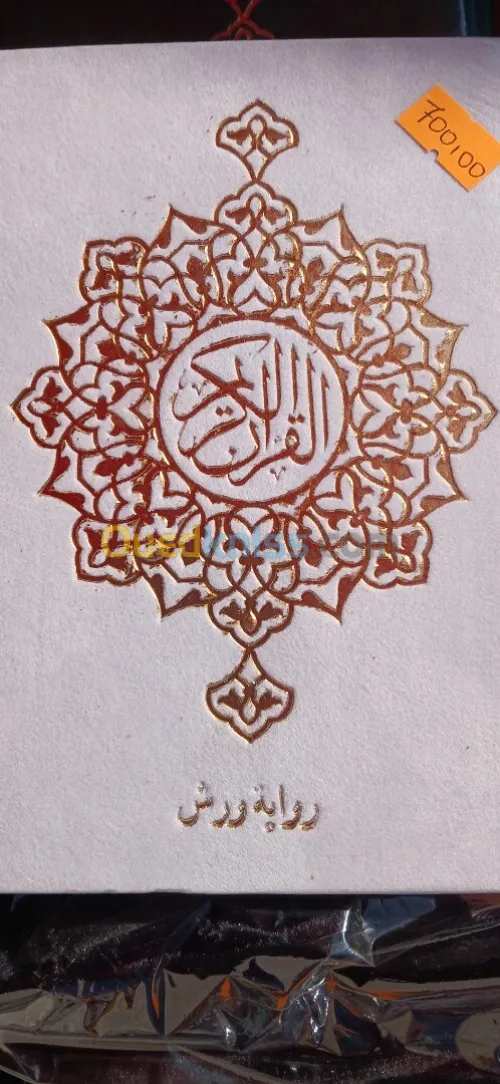 700,00
القرآن الكريم
Ouedkniss.com
رواية ورش